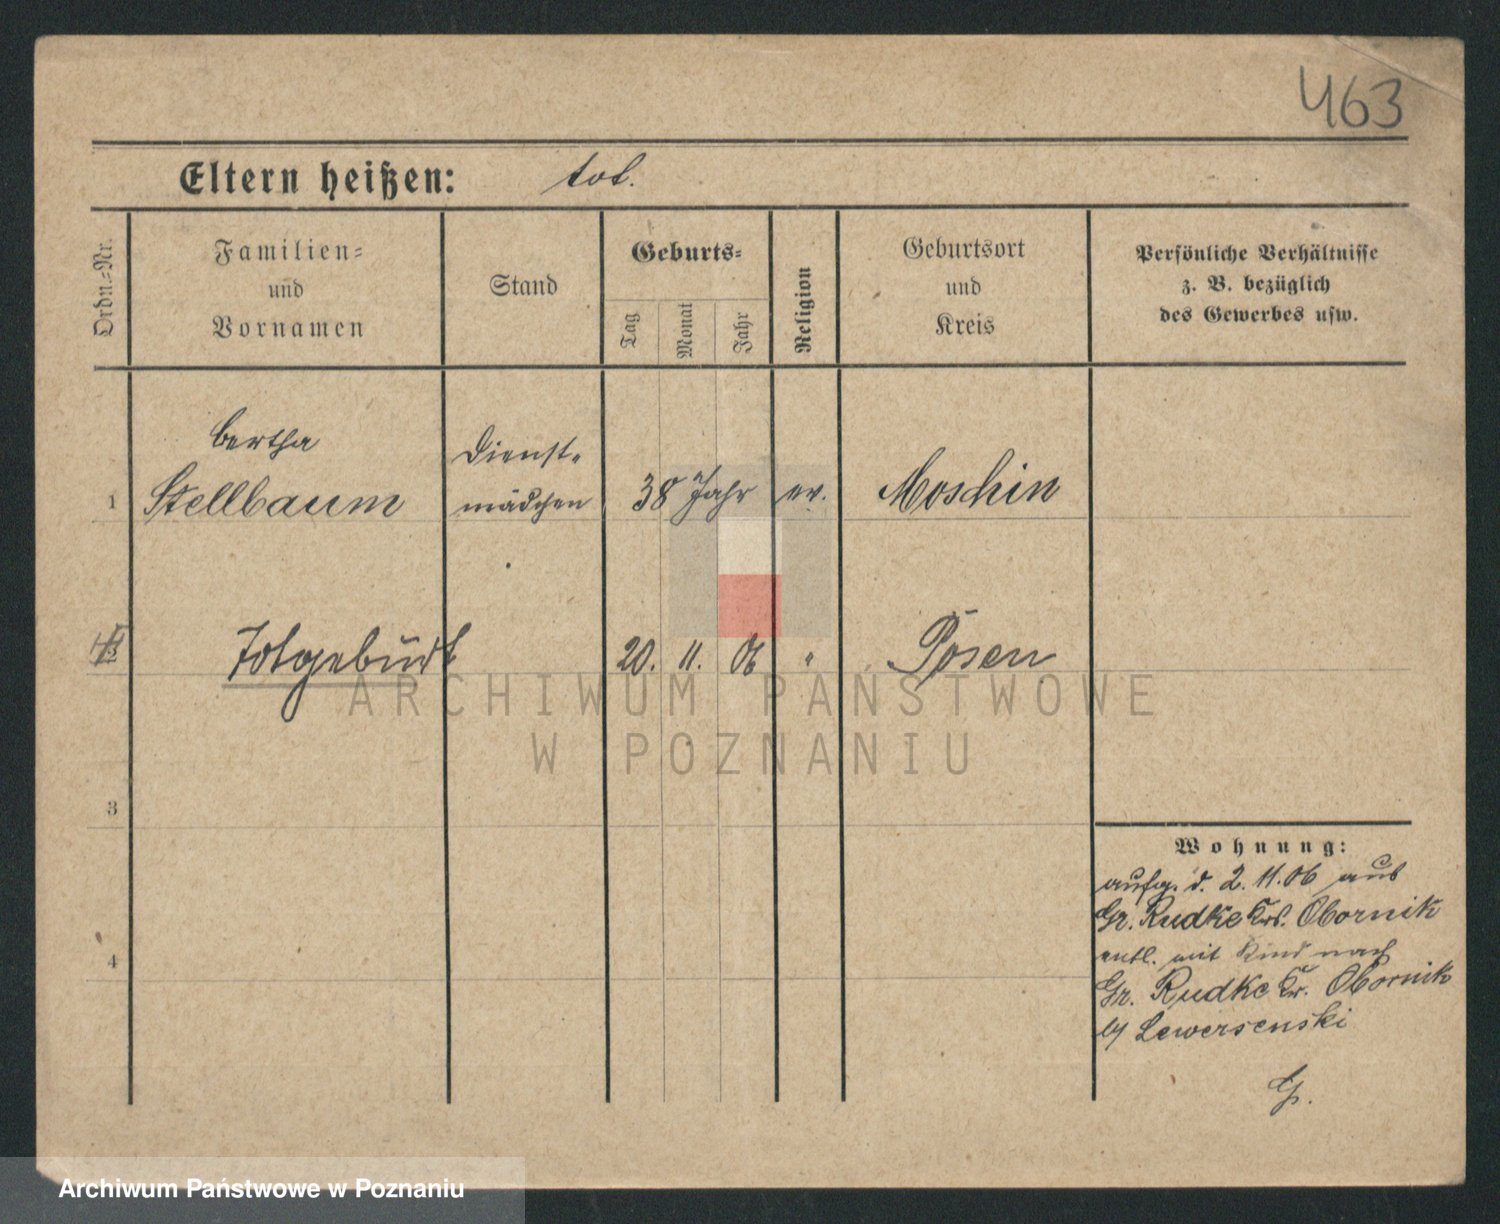 463
Eltern heißen: tot.
Ordn.-Nr.
Familien-
und
Vornamen
Stand
Geburts-
Tag
Monat
Jahr
Religion
Geburtsort
und
Kreis
Persönliche Verhältnisse
z. B. bezüglich
des Gewerbes usw.
Bertha
Dienst-
1 Stellbaum mädchen 38 Jahr ev. Moschin
Totgeburt 20. 11. 06 " Posen
ARCHIWUM PAŃSTWOWE
W POZNANIU
3
Wohnung:
aufg. d. 2. 11. 06 aus
Gr. Rudke Krs. Obornik
4
entl. mit Kind nach
Gr. Rudke Kr. Obornik
by Lewersenski
G.
Archiwum Państwowe w Poznaniu